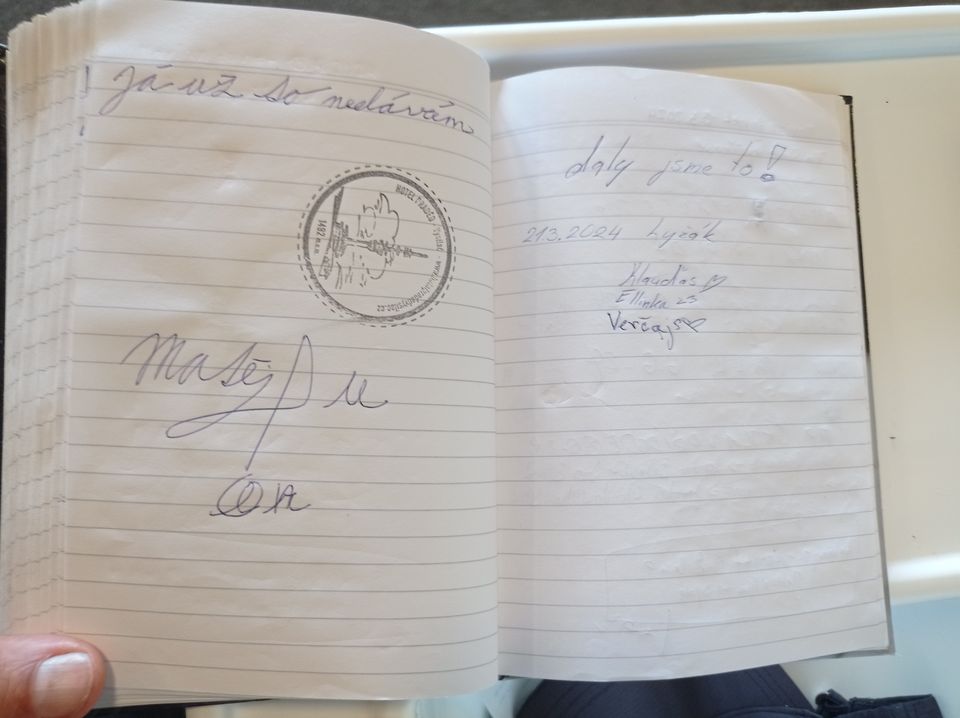 Já už so nedávám
HOTEL PRADĚD
1492 m.n.m.
Matěj
daly jsme to!
21.3.2024 Lyžák
Klaudias ♡
Ellinka 23
Verčajs♡